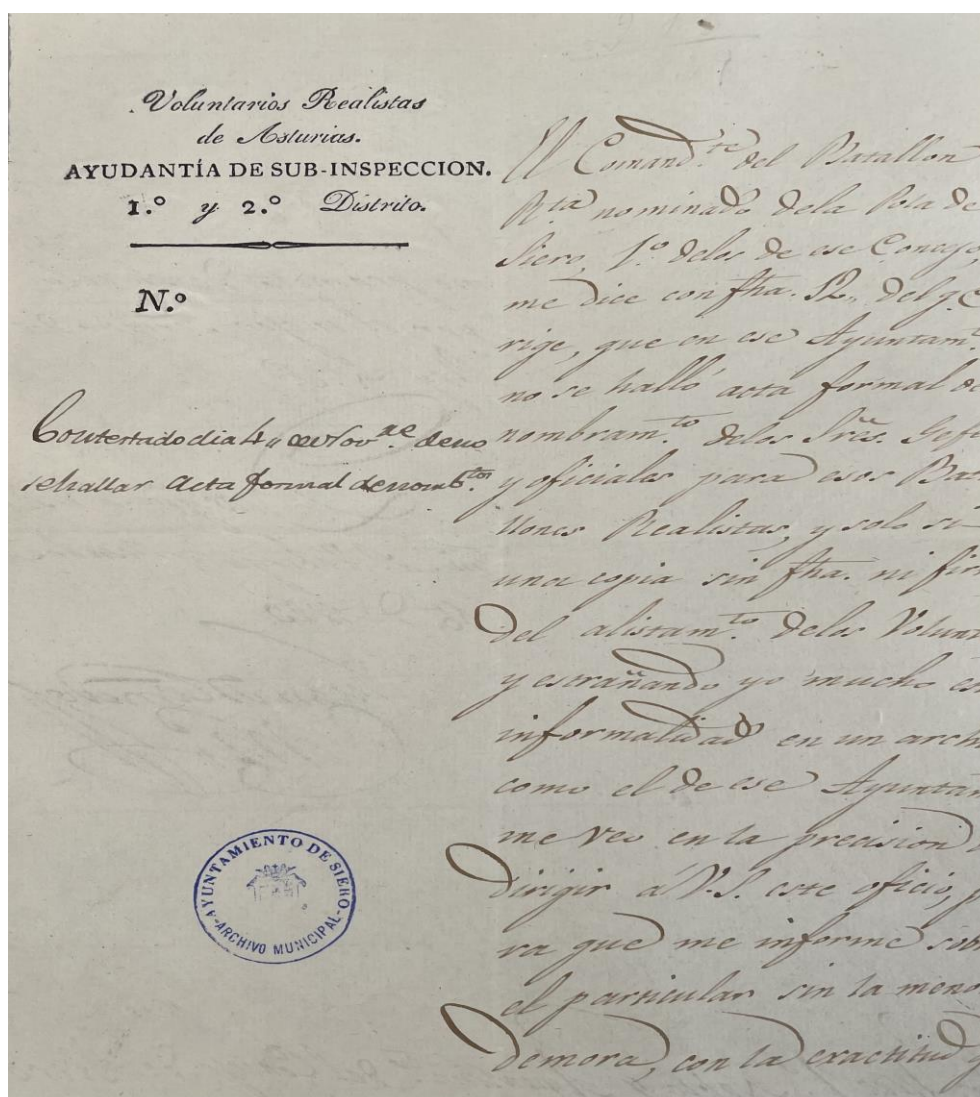 Voluntarios Realistas
de Asturias.
AYUDANTÍA DE SUB-INSPECCION.
1.º y 2.º Distrito.
N.º
Contestado dia 4,, de Nov.re de no
se hallar Acta formal de nomb.tos
AYUNTAMIENTO DE SIERO
ARCHIVO MUNICIPAL
El Comand.te del Batallon
R.ta nominado dela Pola de
Siero, 1.º delos de ese Concejo,
me dice con fha. 12,, del q.e
rige, que en ese Ayuntam.
no se halló acta formal de
nombram.to delos Sres. Gefe
y oficiales para esos Bat
llones Realistas, y solo se
una copia sin fha. ni fir
del alistam.to delos Volunt
y estrañando yo mucho es
informalidad en un arch
como el de ese Ayuntam
me veo en la precision
dirigir á V.S. este oficio, p
ra que me informe sob
el particular sin la meno
demora, con la exactitud